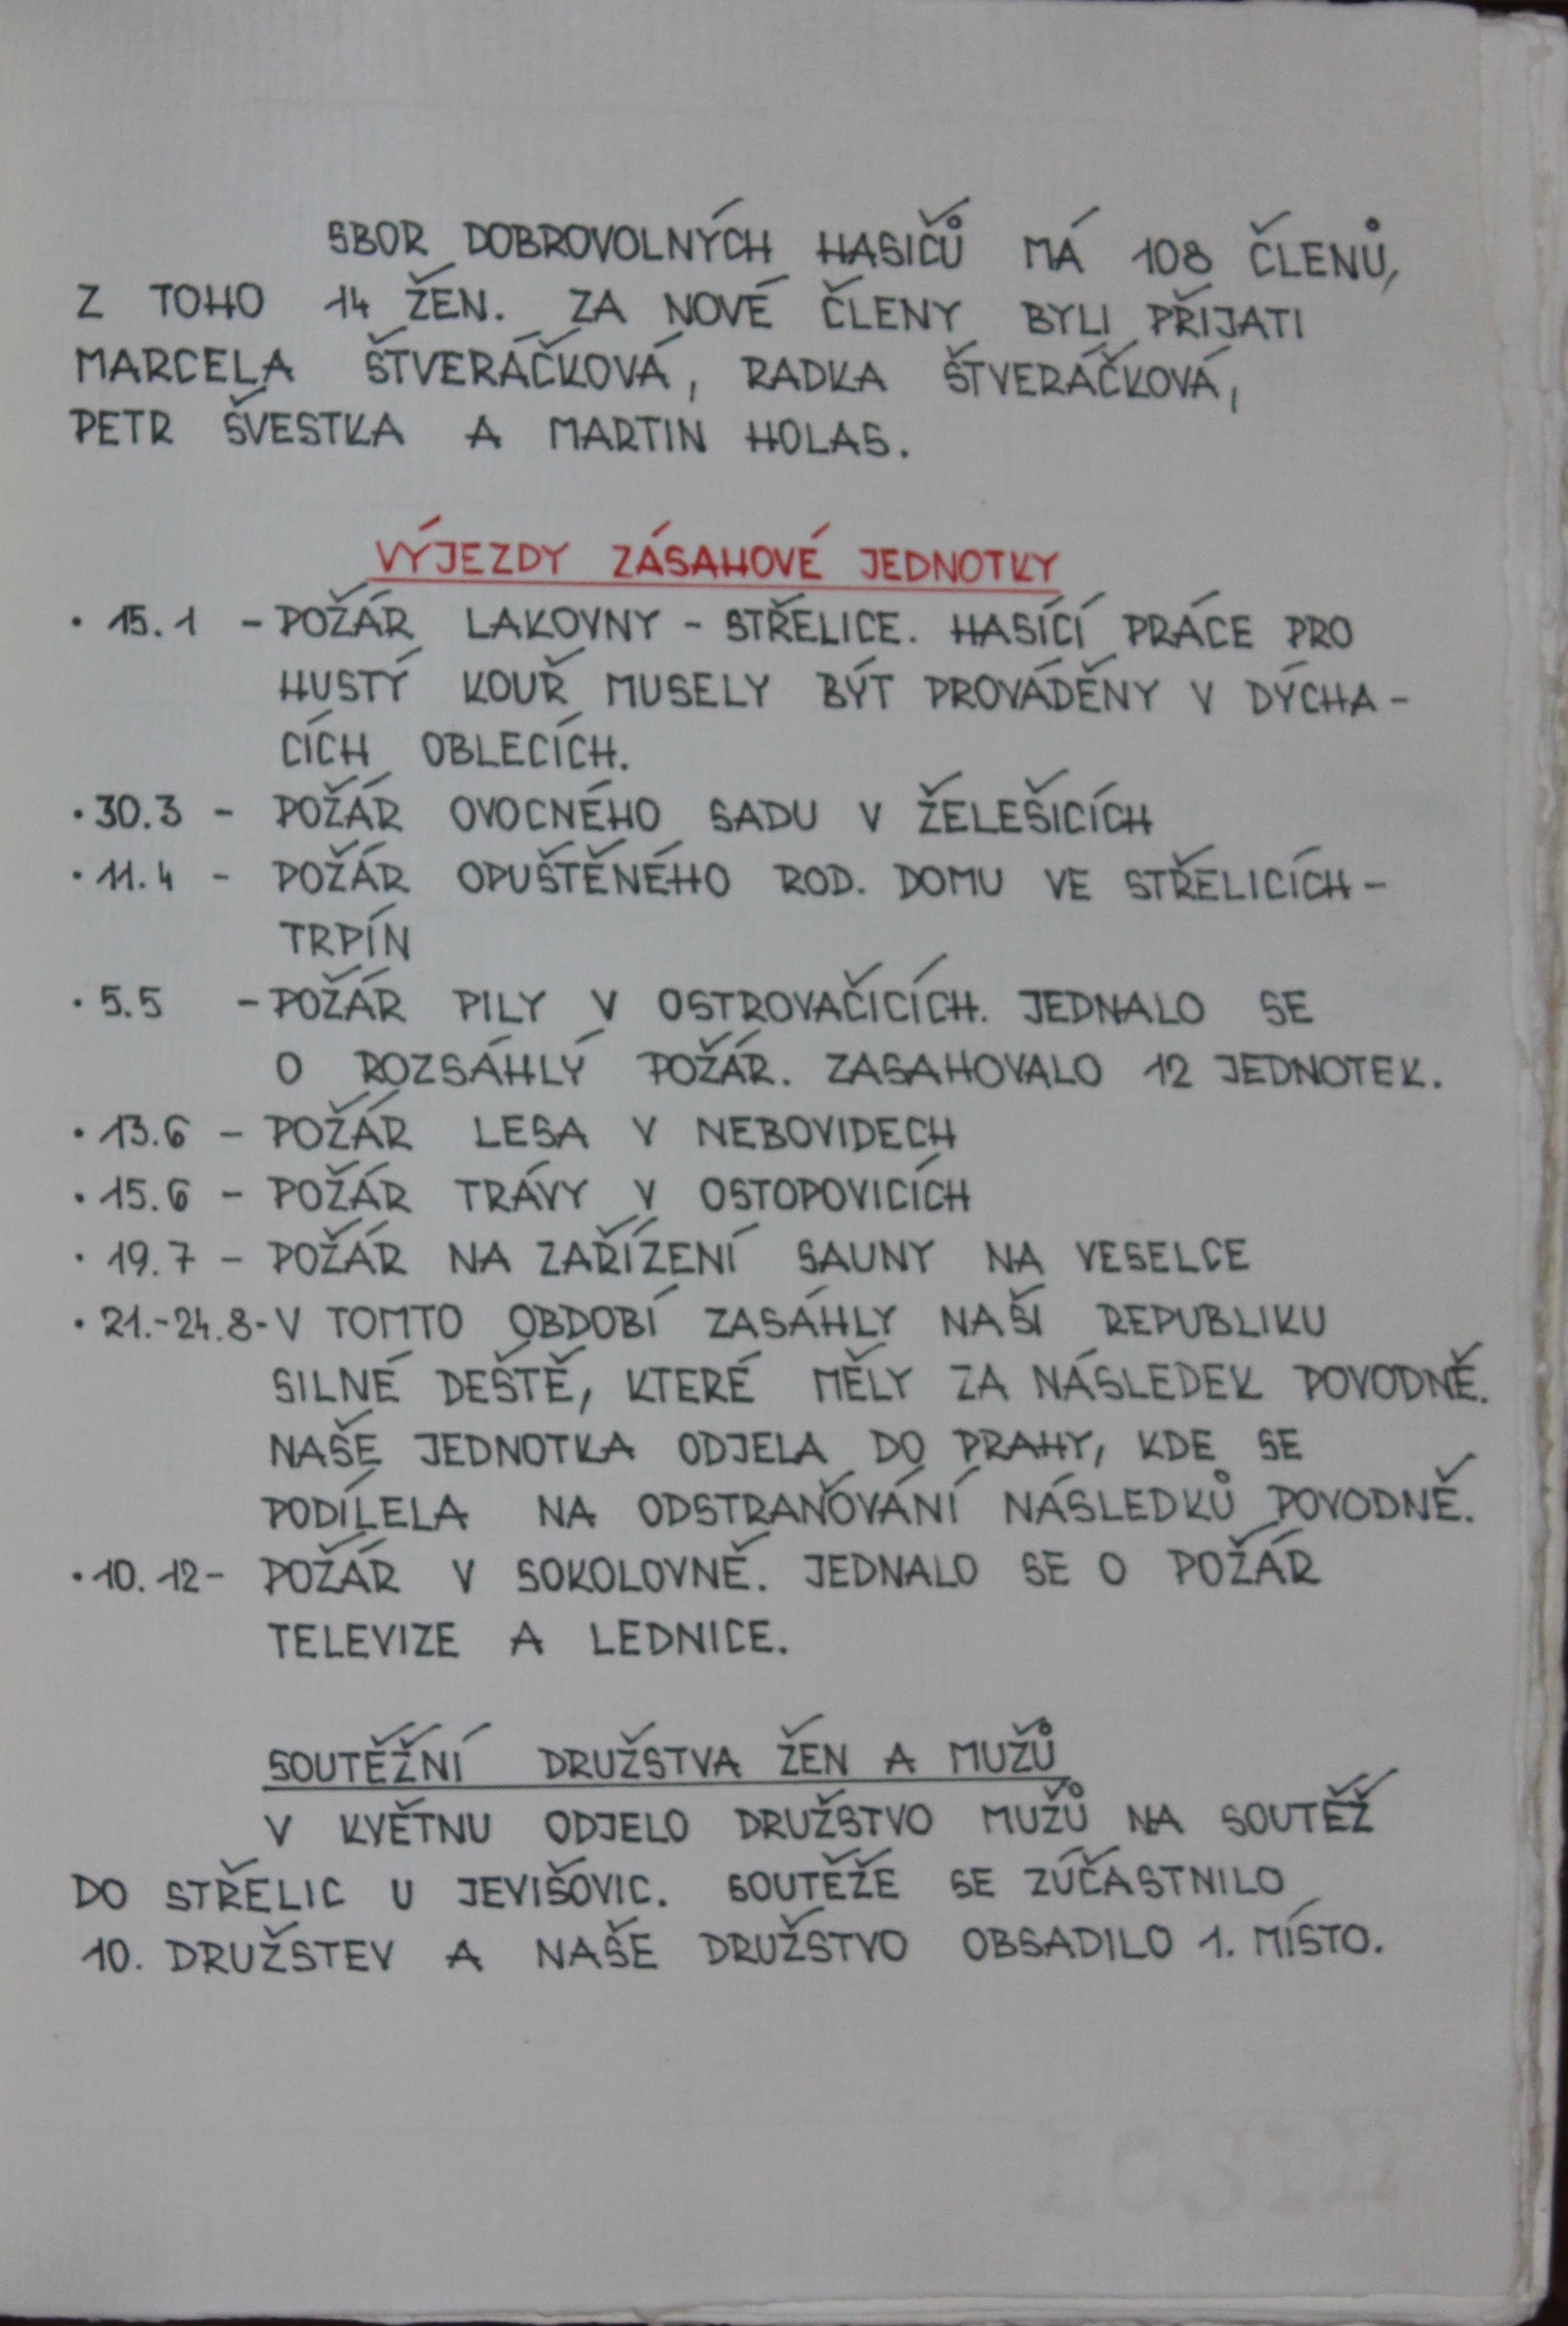 SBOR DOBROVOLNÝCH HASIČŮ MÁ 108 ČLENŮ,
Z TOHO 14 ŽEN. ZA NOVÉ ČLENY BYLI PŘIJATI
MARCELA ŠTVERÁČKOVÁ, RADKA ŠTVERÁČKOVÁ,
PETR ŠVESTKA A MARTIN HOLAS.
VÝJEZDY ZÁSAHOVÉ JEDNOTKY
• 15.1 - POŽÁR LAKOVNY - STŘELICE. HASÍCÍ PRÁCE PRO
HUSTÝ KOUŘ MUSELY BÝT PROVÁDĚNY V DÝCHA-
CÍCH OBLECÍCH.
• 30.3 - POŽÁR OVOCNÉHO SADU V ŽELEŠICÍCH
• 11.4 - POŽÁR OPUŠTĚNÉHO ROD. DOMU VE STŘELICÍCH-
TRPÍN
• 5.5 - POŽÁR PILY V OSTROVAČICÍCH. JEDNALO SE
O ROZSÁHLÝ POŽÁR. ZASAHOVALO 12 JEDNOTEK.
• 13.6 - POŽÁR LESA V NEBOVIDECH
• 15.6 - POŽÁR TRÁVY V OSTOPOVICÍCH
• 19.7 - POŽÁR NA ZAŘÍZENÍ SAUNY NA VESELCE
• 21.-24.8- V TOMTO OBDOBÍ ZASÁHLY NAŠÍ REPUBLIKU
SILNÉ DEŠTĚ, KTERÉ MĚLY ZA NÁSLEDEK POVODNĚ.
NAŠE JEDNOTKA ODJELA DO PRAHY, KDE SE
PODÍLELA NA ODSTRAŇOVÁNÍ NÁSLEDKŮ POVODNĚ.
• 10.12- POŽÁR V SOKOLOVNĚ. JEDNALO SE O POŽÁR
TELEVIZE A LEDNICE.
SOUTĚŽNÍ DRUŽSTVA ŽEN A MUŽŮ
V KVĚTNU ODJELO DRUŽSTVO MUŽŮ NA SOUTĚŽ
DO STŘELIC U JEVIŠOVIC. SOUTĚŽE SE ZÚČASTNILO
10. DRUŽSTEV A NAŠE DRUŽSTVO OBSADILO 1. MÍSTO.